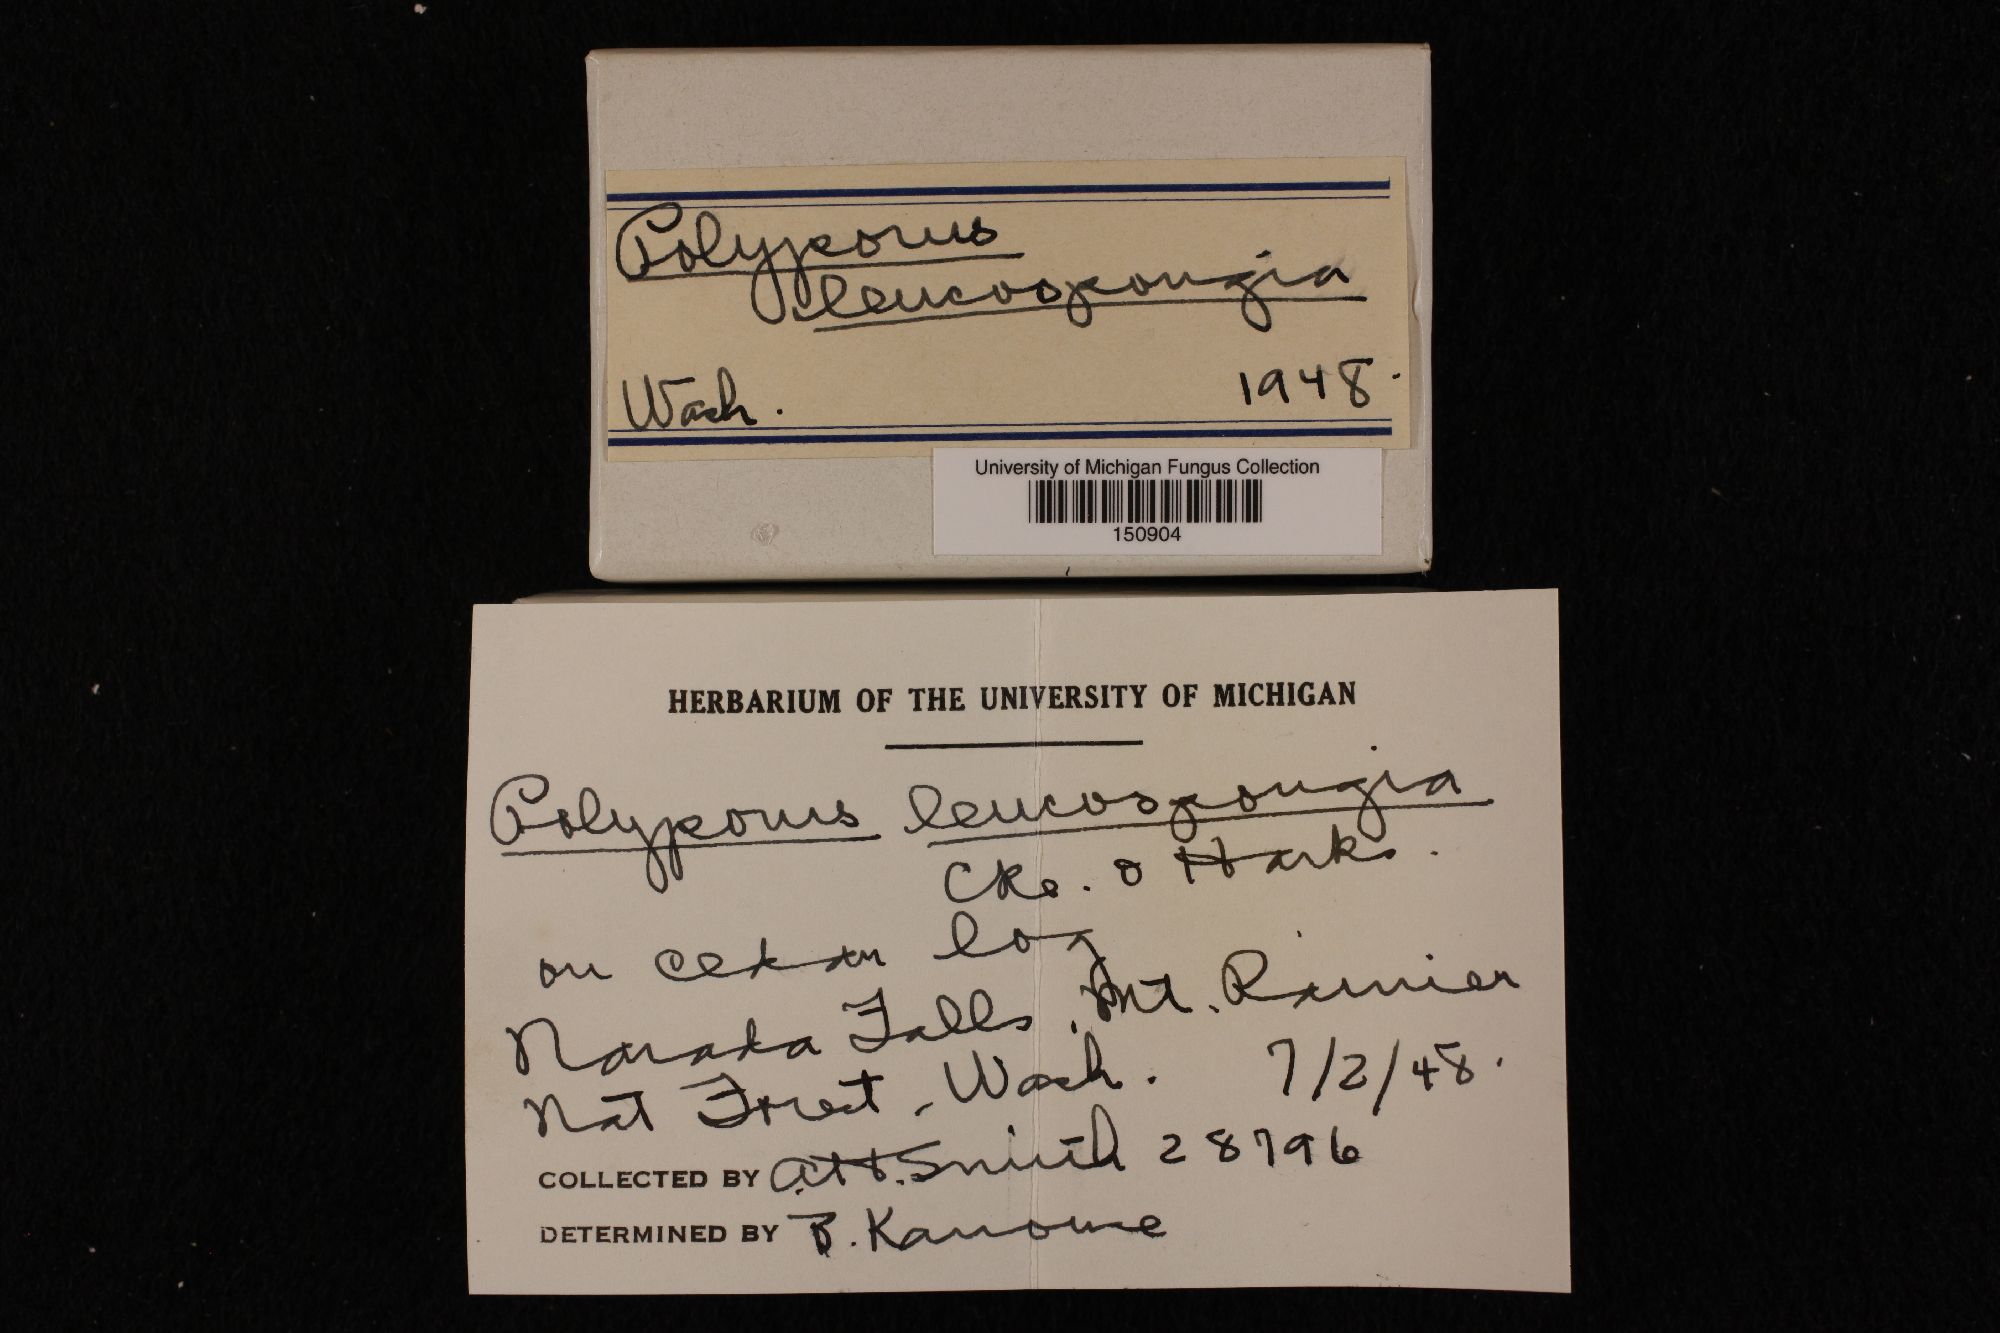 Polyporus
leucospongia
Wash. 1948.
University of Michigan Fungus Collection
150904
HERBARIUM OF THE UNIVERSITY OF MICHIGAN
Polyporus leucospongia
Cke. & Hark.
on cedar log
Narada Falls, Mt. Rainier
Nat Forest, Wash. 7/2/48.
COLLECTED BY A.H. Smith 28796
DETERMINED BY B. Kanouse